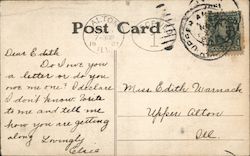 Post Card
ALTON
7-
ILL.
1
Dear Edith
Do I owe you
a letter or do you
owe me one? I declare
I don't know. Write
to me and tell me
how you are getting
along
Lovingly
Elsie
Miss Edith Warnack
Upper Alton
Ill.